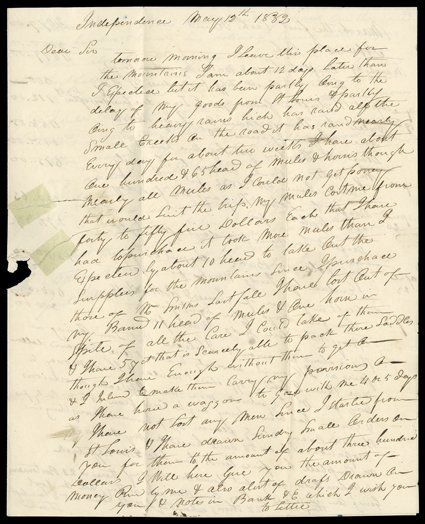 Independence May 12th 1832
Dear Sir
tomorow morning I Leave this place for
the Mountains I am about 12 days Later than
I Expected but it has been partly Oing to the
delay of My Goods from St Louis & partly
Oing to heavy rains hich has raisd all the
Small Creeks On the road it has raind nearly
Every day for about two weeks I have about
One hundred & 65 head of Mules & horses though
nearly all Mules as I Could not get poneys
that would Suit the trip. My Mules Cost me from
forty to fifty five Dollars Each that I have
had to purchace it took More mules than I
Expected by about 10 head to take Out the
Supplies for the Mountains Since I purchace
those of Mr Smiths Last fall I have lost Out of
my Band 11 head of Mules & One horse in
Spite of all thee Care I Could take of them
& I have 5 yet that is Scarcely able to pack there Saddles
though I have Enough without them to get a
& I Intend to make them Carry my provisions a
as I have hired a waggon to go with me 4 or 5 days
I have not lost any Men Since I Started from
St Louis & I have drawn Sundry Small Orders on
you for them to the amount of about three hundred
Dollars I Will here Give you the amount of
Money by me & also alist of drafs Drawn On
you & Note in Bank &c which I wish you
to settle